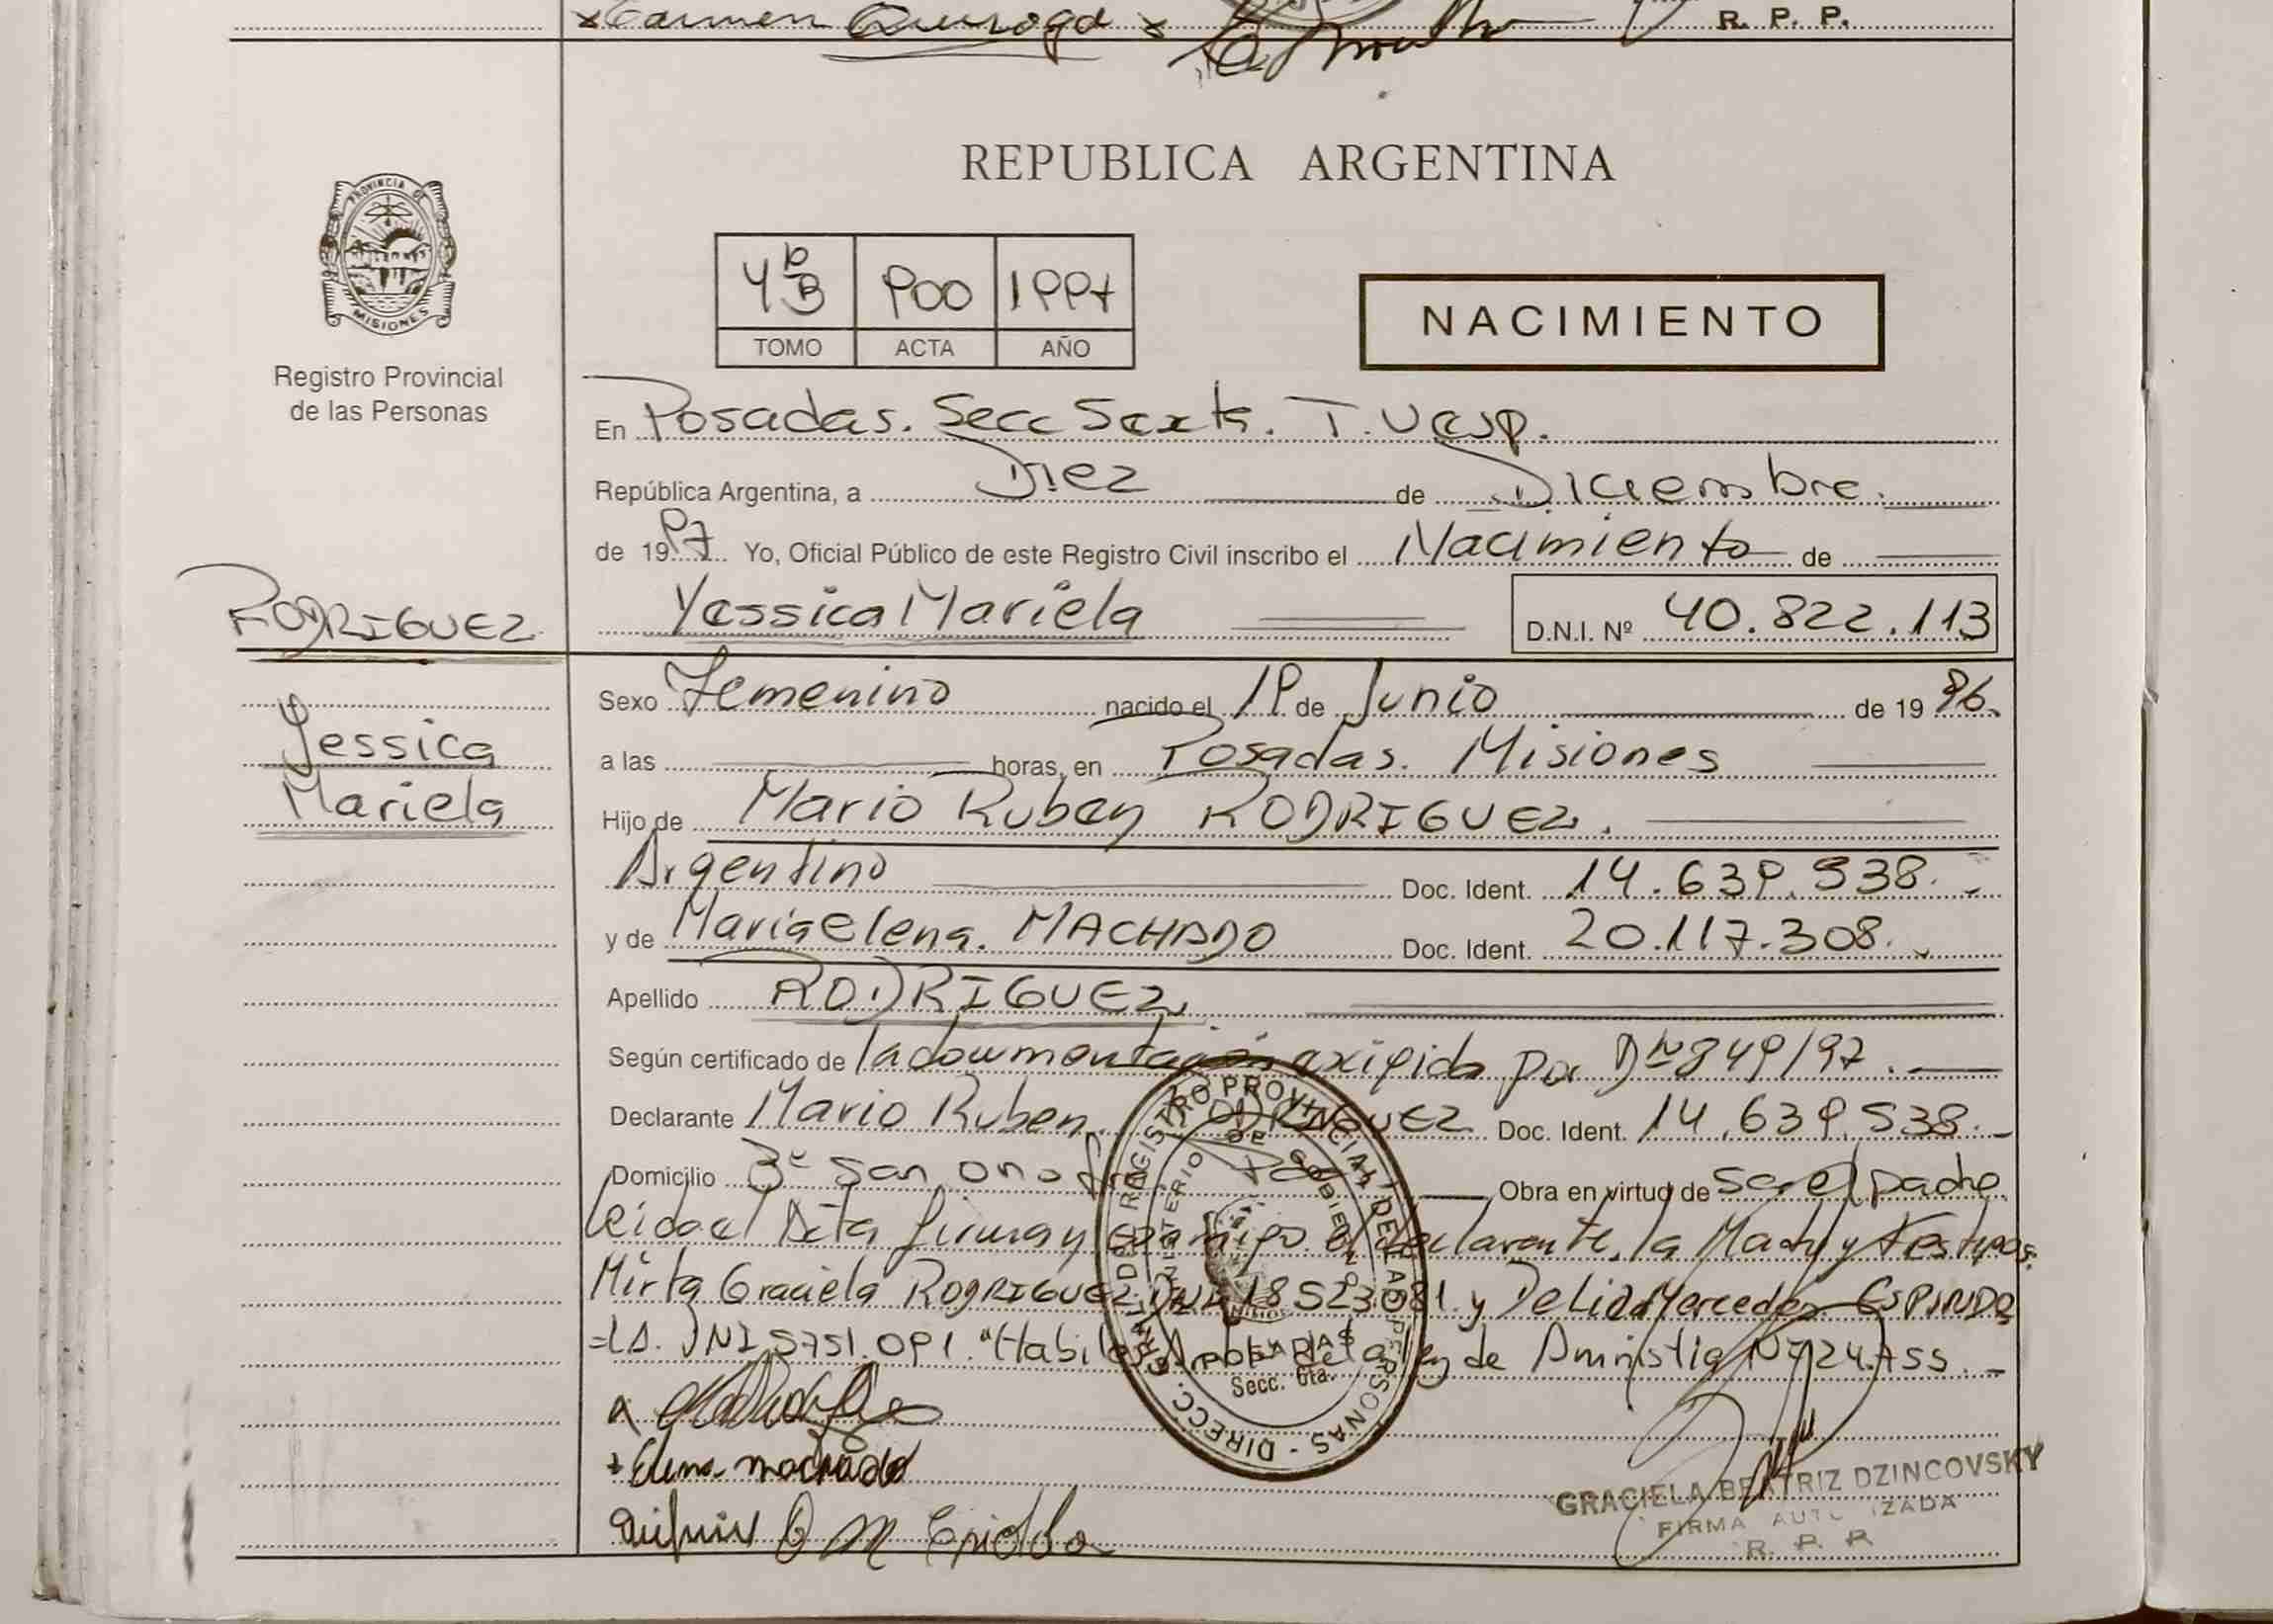 x Carmen Quiroga x
R. P. P.
REPUBLICA ARGENTINA
PROVINCIA DE
MISIONES
Registro Provincial
de las Personas
4 b/B 900 1997
TOMO ACTA AÑO
NACIMIENTO
En Posadas. Secc Sexta. T. Vesp.
República Argentina, a Diez de Diciembre.
de 1997 Yo, Oficial Público de este Registro Civil inscribo el Nacimiento de
RODRIGUEZ
Yessica Mariela D.N.I. Nº 40.822.113
Yessica
Mariela
Sexo Femenino nacido el 19 de Junio de 1996.
a las horas, en Posadas. Misiones
Hijo de Mario Ruben RODRIGUEZ.
Argentino Doc. Ident. 14.639.538.
y de Maria elena. MACHADO Doc. Ident. 20.117.308.
Apellido RODRIGUEZ.
Según certificado de la documentación exigida por D Nº 849/97.
Declarante Mario Ruben RODRIGUEZ Doc. Ident. 14.639.538.
Domicilio Bº San Onofre Obra en virtud de ser el padre
leida el Acta firman conmigo el declarante, la Madre y testigos:
Mirta Graciela RODRIGUEZ DNI 18523.081. y Delida Mercedes ESPINDO
=LA. DNI 5751.091. "Habil de la ley de Aministia Nº 24.755.
DIRECC. GRAL. DE REGISTRO PROVINCIAL DE LAS PERSONAS
MINISTERIO DE GOBIERNO
POSADAS
Secc. 6ta.
+ Elena machado
GRACIELA BEATRIZ DZINCOVSKY
FIRMA AUTORIZADA
R. P. P.